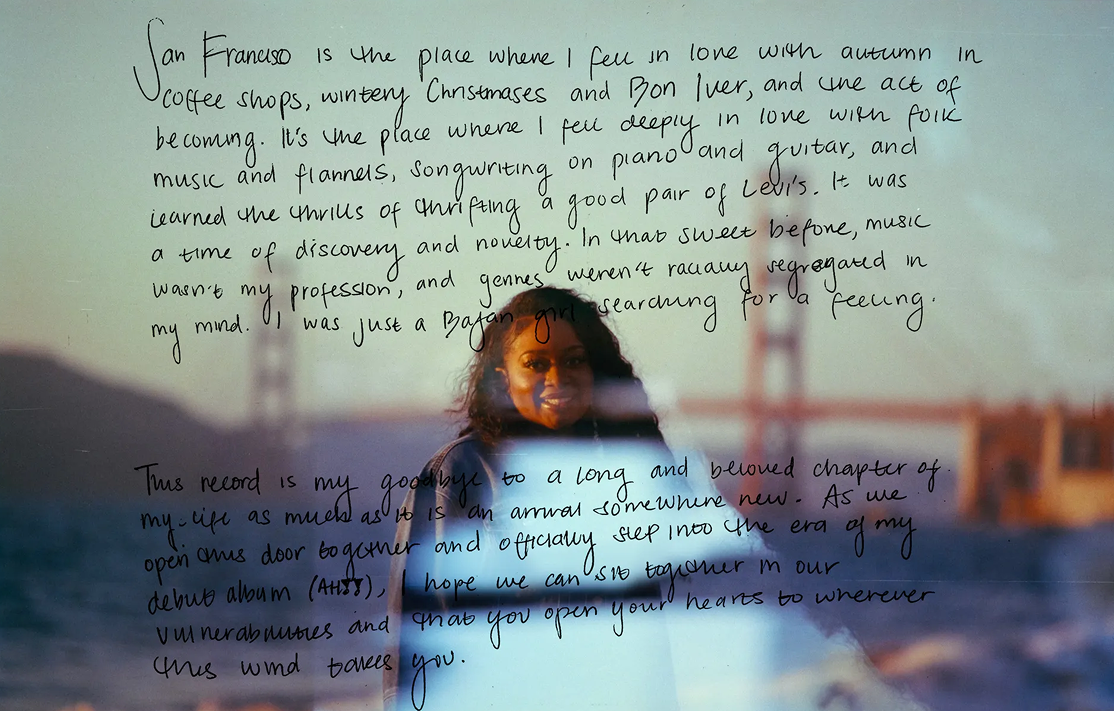 San Francisco is the place where I fell in love with autumn in
coffee shops, wintery Christmases and Bon Iver, and the act of
becoming. It's the place where I fell deeply in love with folk
music and flannels, songwriting on piano and guitar, and
learned the thrills of thrifting a good pair of Levi's. It was
a time of discovery and novelty. In that sweet before, music
wasn't my profession, and genres weren't racially segregated in
my mind. I was just a Bajan girl searching for a feeling.
This record is my goodbye to a long and beloved chapter of
my life as much as it is an arrival somewhere new. As we
open this door together and officially step into the era of my
debut album (AH!!), I hope we can sit together in our
vulnerabilities and that you open your hearts to wherever
this wind takes you.